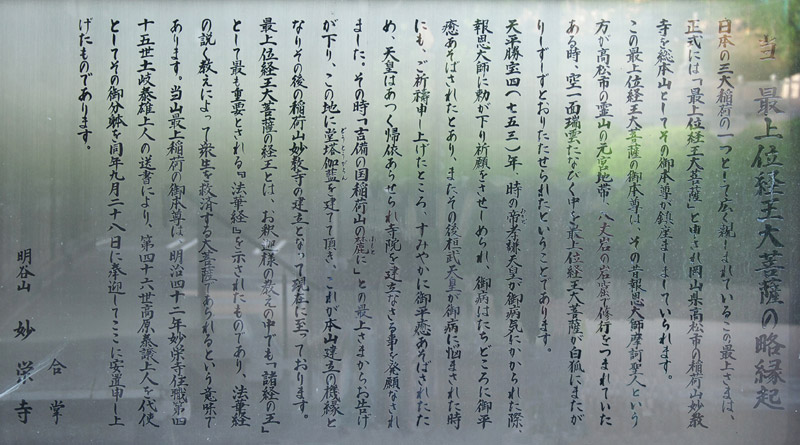 当 最上位経王大菩薩の略縁起
日本の三大稲荷の一つとして広く親しまれているこの最上さまは、
正式には「最上位経王大菩薩」と申され岡山県高松市の稲荷山妙教
寺を総本山としてその御本尊が鎮座ましましていられます。
この最上位経王大菩薩の御本尊は、その昔報恩大師摩訶聖人という
方が高松市の霊山の元宮地帯・八丈岩の岩窟で修行をつまれていた
ある時、空一面瑞雲たなびく中を最上位経王大菩薩が白狐にまたが
りしずしずとおりたたせられたということであります。
天平勝宝四(七五三)年、時の帝孝謙天皇が御病気にかかられた際、
報恩大師に勅が下り祈願をさせしめられ、御病はたちどころに御平
癒あそばされたとあり、またその後桓武天皇が御病に悩まされた時
にも、ご祈祷申し上げたところ、すみやかに御平癒あそばされたた
め、天皇はあつく帰依あらせられ寺院を建立なさる事を発願なされ
ました。その時「吉備の国稲荷山の麓に」との最上さまからお告げ
が下り、この地に堂塔伽藍を建てて頂き、これが本山建立の機縁と
なりその後の稲荷山妙教寺の建立となって現在に至っております。
最上位経王大菩薩の経王とは、お釈迦様の教えの中でも「諸経の王」
として最も重要とされる『法華経』を示されたものであり、法華経
の説く教えによって衆生を救済する大菩薩であられるという意味で
あります。当山最上稲荷の御本尊は、明治四十二年妙栄寺住職第四
十五世土岐泰雄上人の送書により、第四十六世高原泰譲上人を代使
としてその御分躰を同年九月二十八日に奉迎してここに安置申し上
げたものであります。
合掌
明谷山 妙栄寺